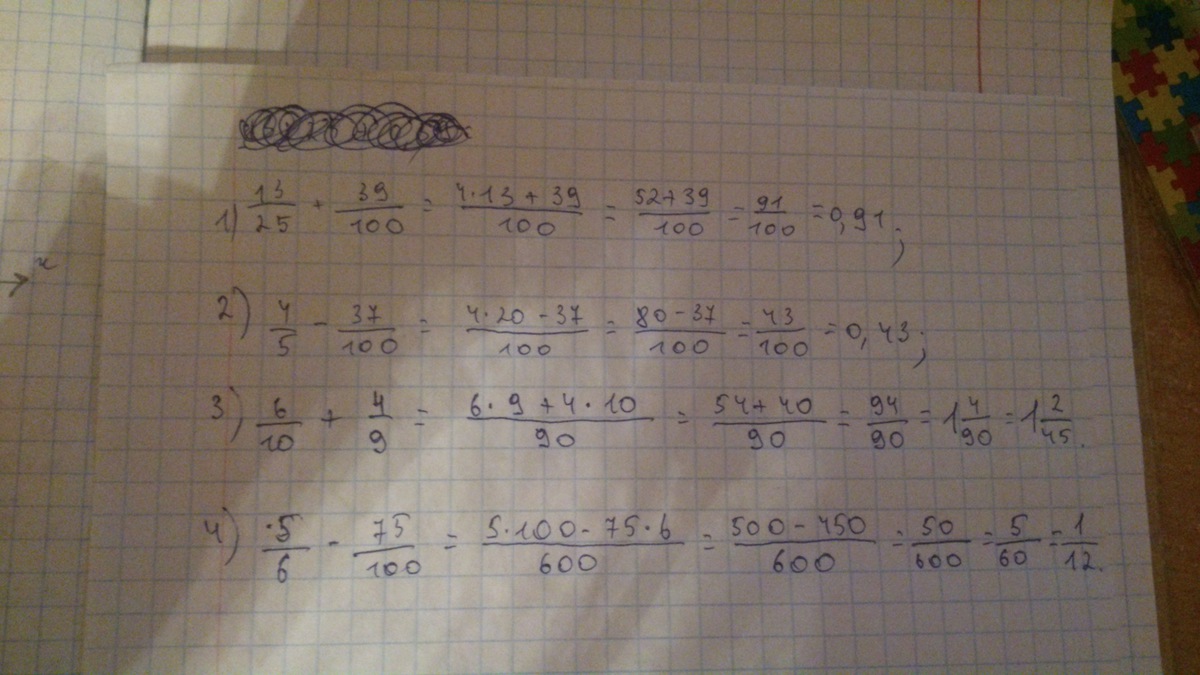 1) 13/25 + 39/100 = 4·13+39/100 = 52+39/100 = 91/100 = 0,91;
x
2) 4/5 - 37/100 = 4·20-37/100 = 80-37/100 = 43/100 = 0,43;
3) 6/10 + 4/9 = 6·9+4·10/90 = 54+40/90 = 94/90 = 1 4/90 = 1 2/45.
4) ·5/6 - 75/100 = 5·100-75·6/600 = 500-450/600 = 50/600 = 5/60 = 1/12.